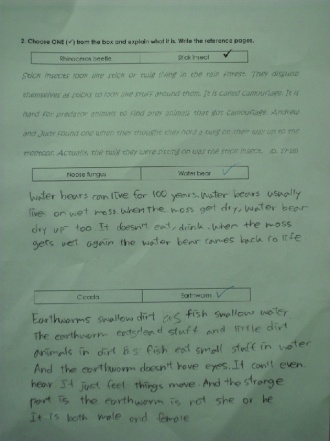 2. Choose ONE (✓) from the box and explain what it is. Write the reference pages.
Rhinoceros beetle Stick insect ✓
Stick insects look like stick or twig living in the rain forest. They disguise
themselves as sticks to look like stuff around them. It is called camouflage. It is
hard for predator animals to find stick insects that got camouflage. Andrew
and Judy found one when they thought that held a twig on their way up to the
treetops. Actually, the twig they were sitting on was the stick insect.
Noose fungus Water bear ✓
Water bears can live for 100 years. Water bears usually
live on wet moss. When the moss get dry, water bear
dry up too. It doesn't eat, drink. When the moss
gets wet again the water bear comes back to life
Cicada Earthworm ✓
Earthworms swallow dirt as fish swallow water
The earthworm eats dead stuff and little dirt
animals in dirt as fish eat small stuff in water
And the earthworm doesn't have eyes. It can't even
hear It just feel things move. And the strange
part is the earthworm is not she or he
It is both male and female